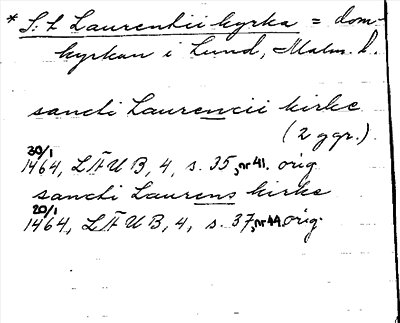 * S:t Laurentii kyrka = dom-
kyrkan i Lund, Malm. l.
sancti Laurencii kirke
(2 ggr.).
30/1
1464, LÄUB, 4, s. 35, nr 41. orig
sancti Laurens kirke
20/1
1464, LÄUB, 4, s. 37, nr 44. orig.